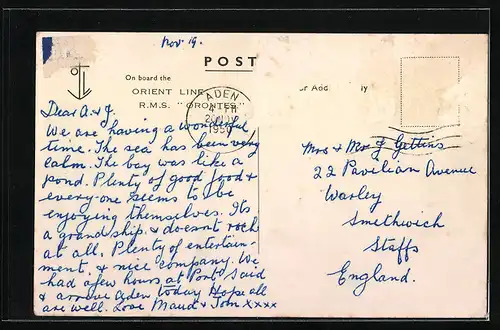 Nov. 19.
POST
On board the
ORIENT LINE
R.M.S. "ORONTES"
or Add ly
ADEN
4-PM
20 NO
195
Dear A. & J.
We are having a wonderful
time. The sea has been very
calm. The bay was like a
pond. Plenty of good food &
every-one seems to be
enjoying themselves. Its
a grand ship. & doesnt rock
at all. Plenty of entertain-
ment. & nice company. We
had a few hours at Port Said
& arrive Aden today Hope all
are well. Love Maud & Tom xxxx
Mrs & Mr J Gettins
22 Pavilian Avenue
Warley
Smethwich
Staffs
England.